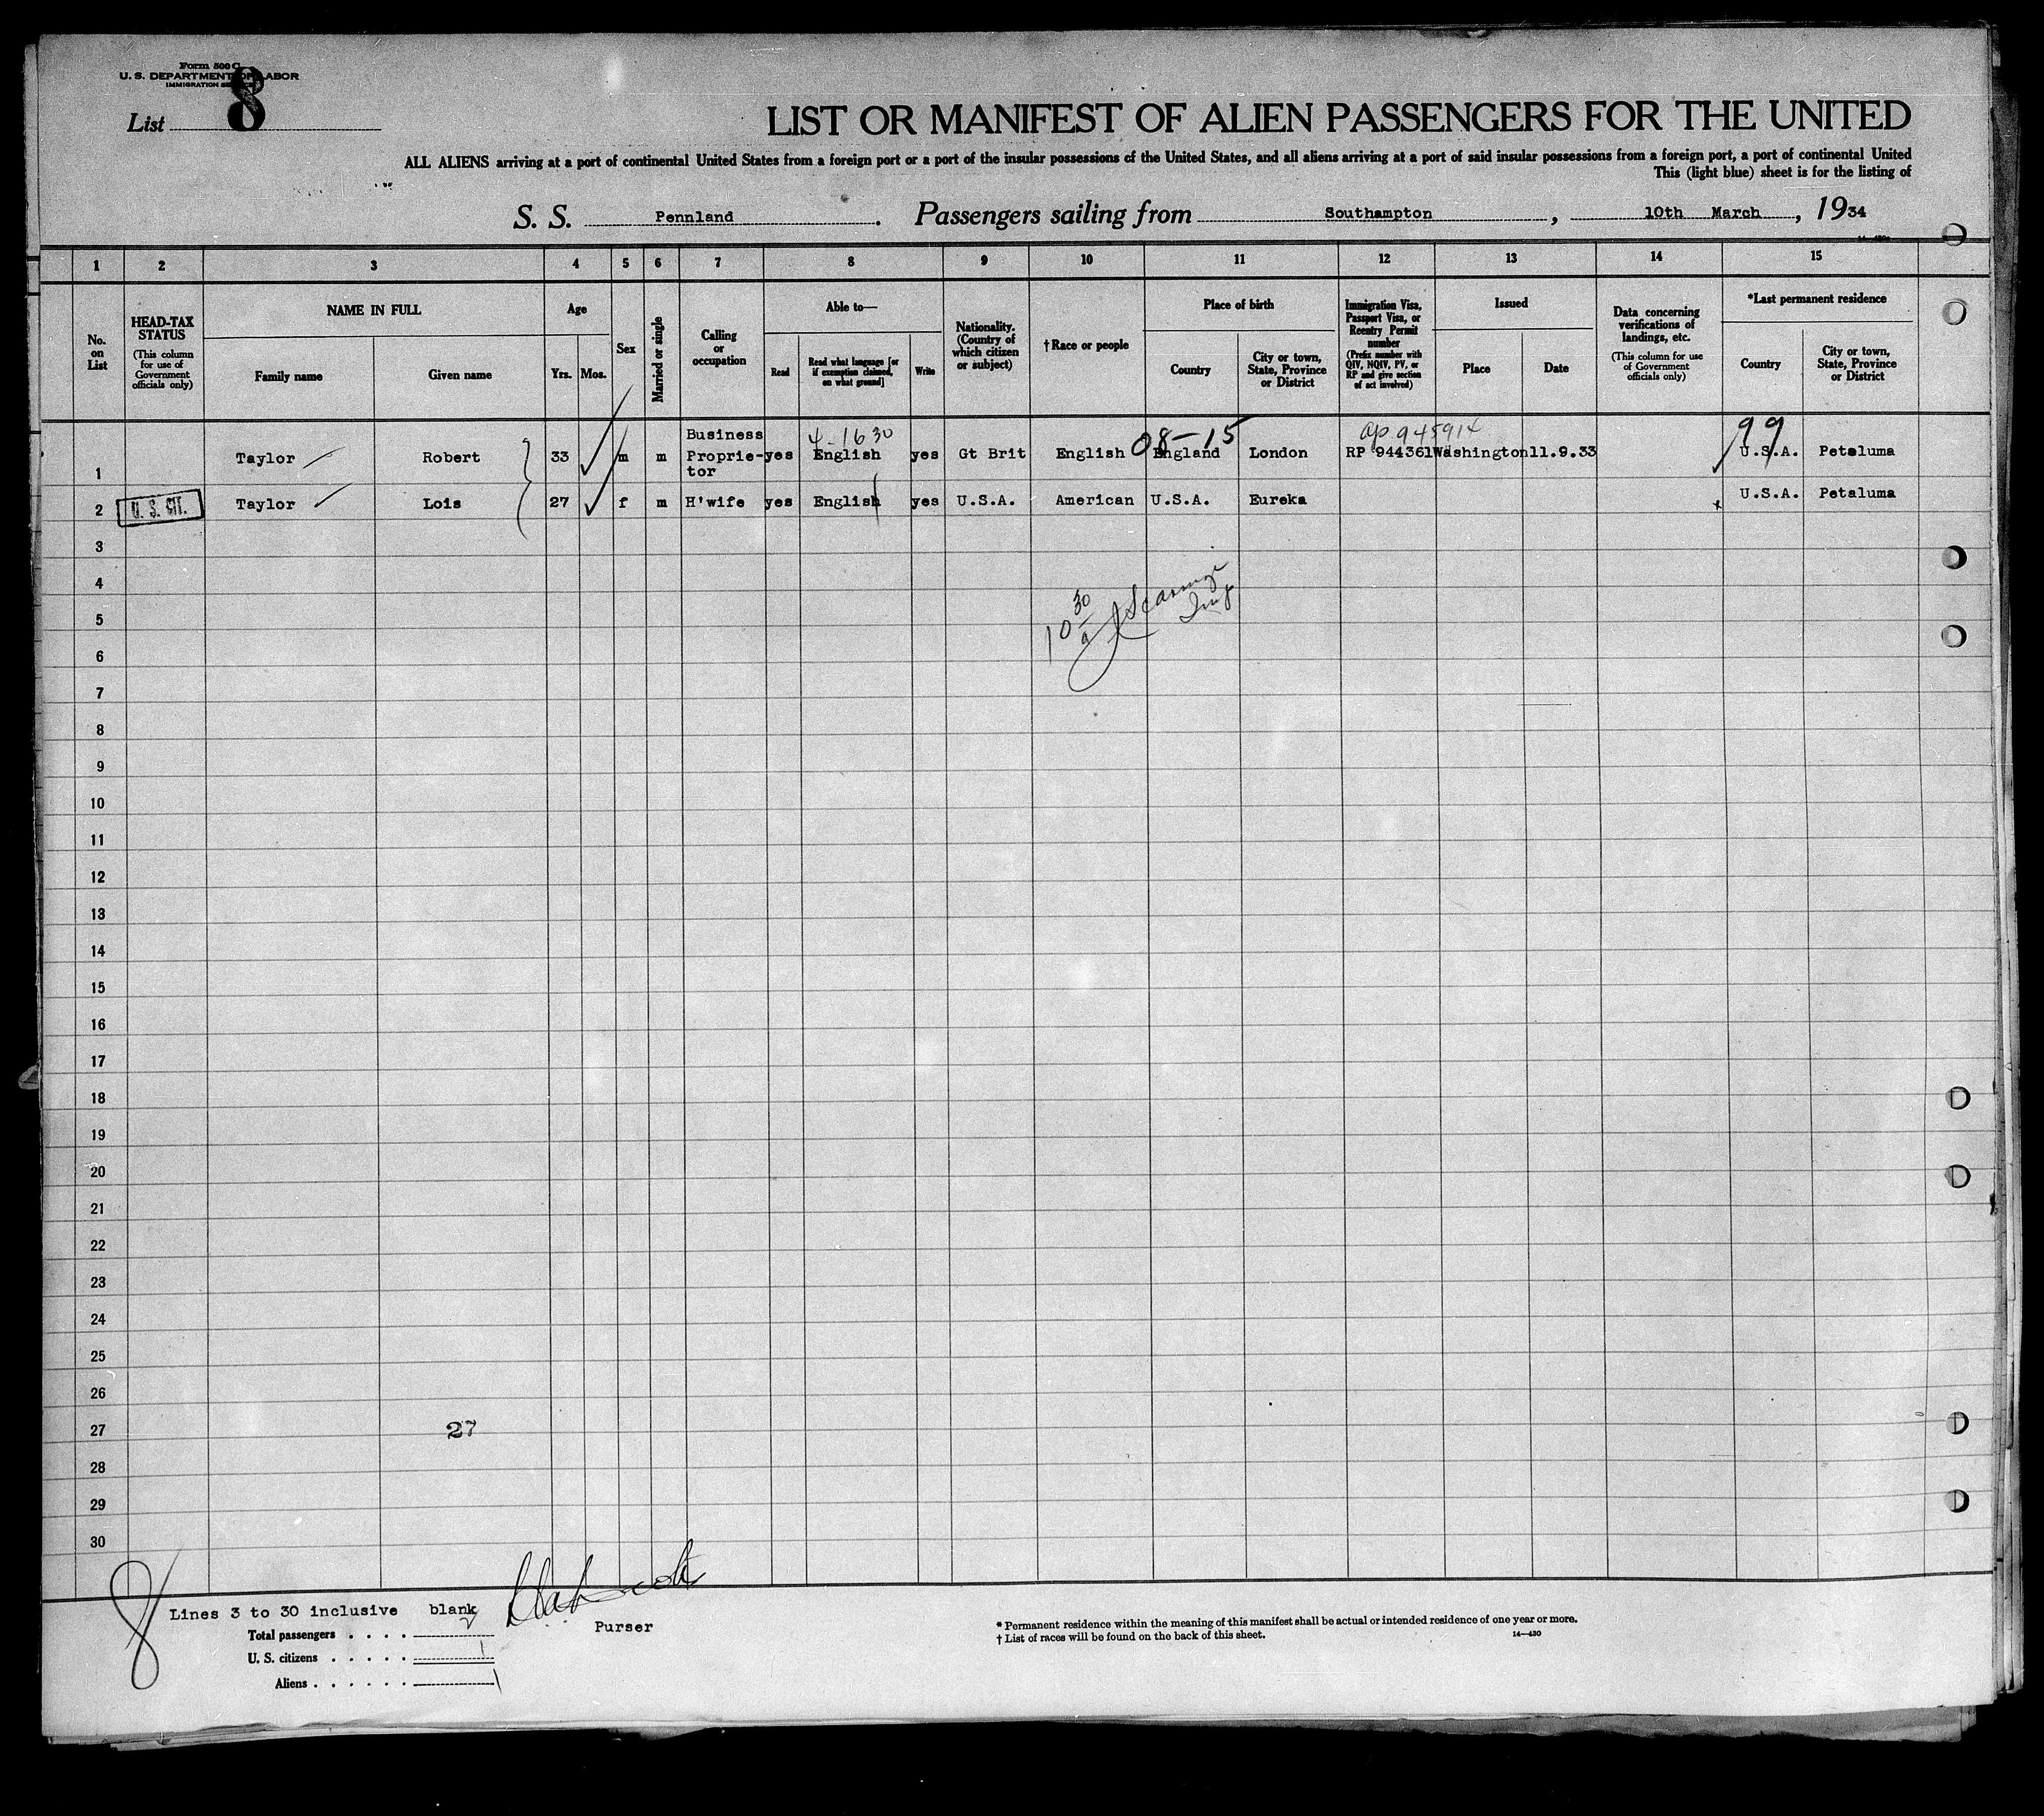 Form 500 C
U. S. DEPARTMENT OF LABOR
IMMIGRATION
List 8
LIST OR MANIFEST OF ALIEN PASSENGERS FOR THE UNITED
ALL ALIENS arriving at a port of continental United States from a foreign port or a port of the insular possessions of the United States, and all aliens arriving at a port of said insular possessions from a foreign port, a port of continental United
This (light blue) sheet is for the listing of
S. S. Pennland. Passengers sailing from Southampton, 10th March, 1934
1 2 3 4 5 6 7 8 9 10 11 12 13 14 15
No. on List
HEAD-TAX STATUS (This column for use of Government officials only)
NAME IN FULL
Family name
Given name
Age
Yrs. Mos.
Sex
Married or single
Calling or occupation
Able to—
Read
Read what language [or if exemption claimed, on what ground]
Write
Nationality. (Country of which citizen or subject)
† Race or people
Place of birth
Country
City or town, State, Province or District
Immigration Visa, Passport Visa, or Reentry Permit number (Prefix number with QIV, NQIV, PV, or RP and give section of act involved)
Issued
Place
Date
Data concerning verifications of landings, etc. (This column for use of Government officials only)
*Last permanent residence
Country
City or town, State, Province or District
4-1630 08-15 ap 945914 99
1 Taylor Robert 33 m m Business Proprie-tor yes English yes Gt Brit English England London RP 944361 Washington 11.9.33 U.S.A. Petaluma
2 U. S. CIT. Taylor Lois 27 f m H'wife yes English yes U.S.A. American U.S.A. Eureka U.S.A. Petaluma
3
4
5
10 30
6
7
8
9
10
11
12
13
14
15
16
17
18
19
20
21
22
23
24
25
26
27 27
28
29
30
8
Lines 3 to 30 inclusive blank
Purser
Total passengers . . . . 2
U. S. citizens . . . . . 1
Aliens . . . . . . 1
* Permanent residence within the meaning of this manifest shall be actual or intended residence of one year or more.
† List of races will be found on the back of this sheet.
14—430